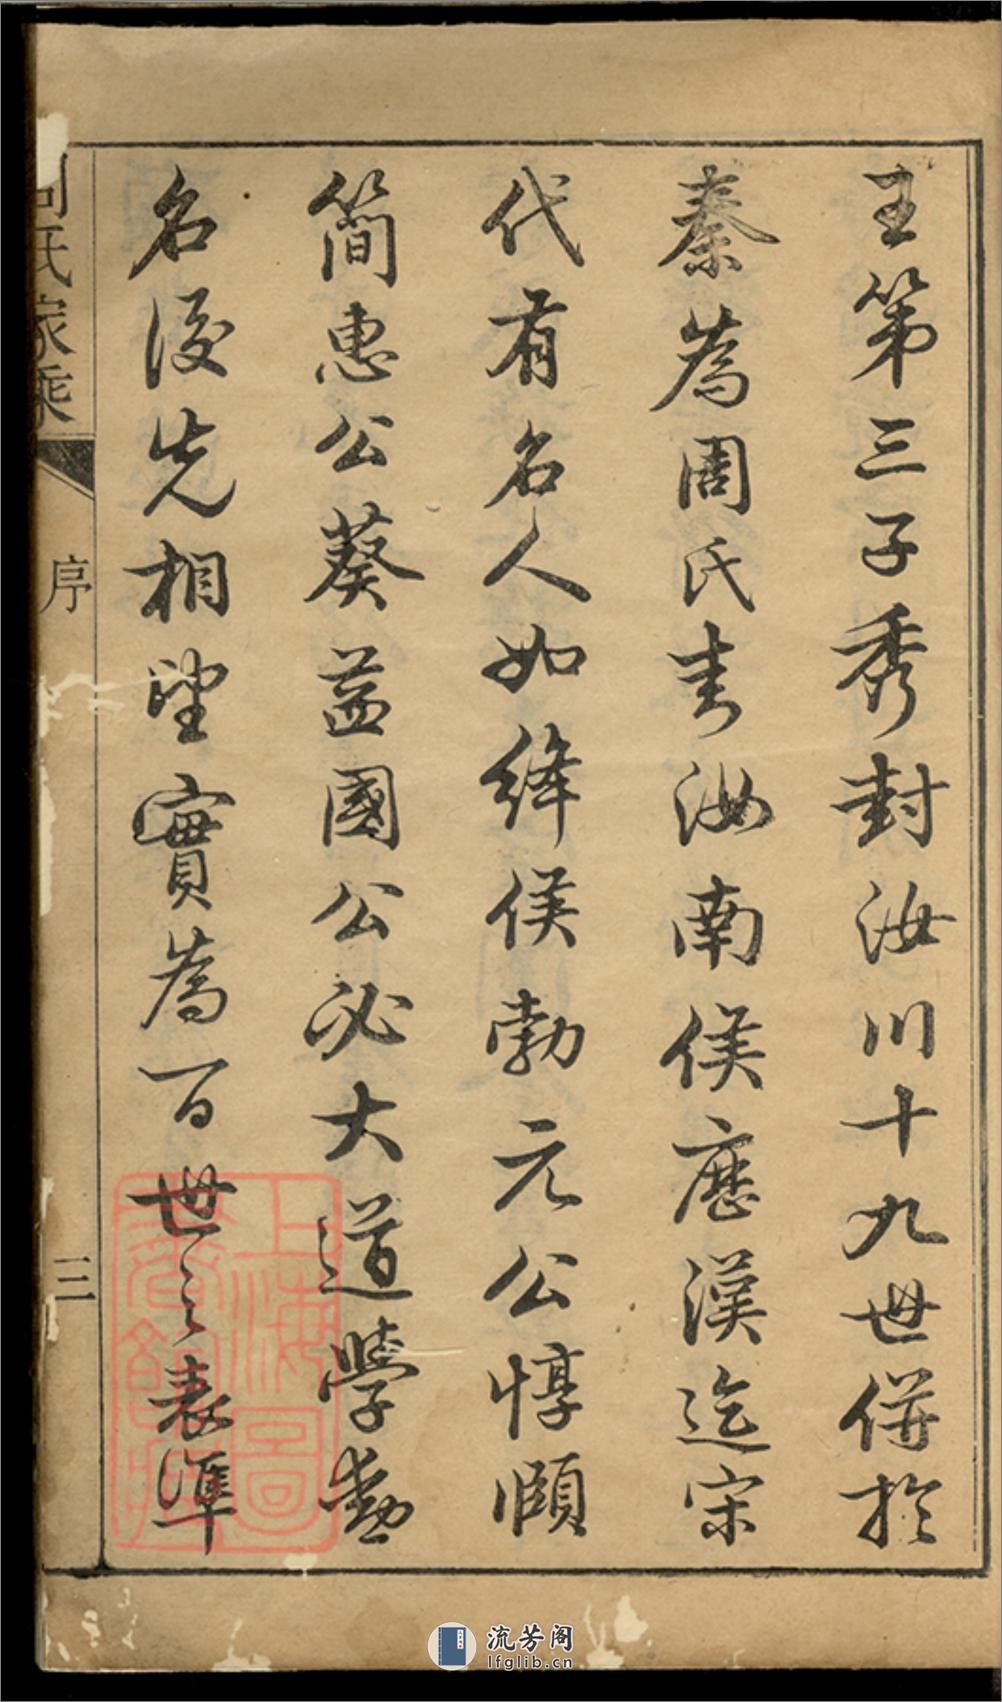 王第三子秀封汝川十九世併於
秦為周氏青汝南侯歷漢迄宋
代有名人如絳侯勃元公惇頤
簡惠公葵益國公必大道學勳
名後先相望實為百世之表準
周氏家乘
序
三
上海圖
書館藏
流芳阁
lfglib.cn